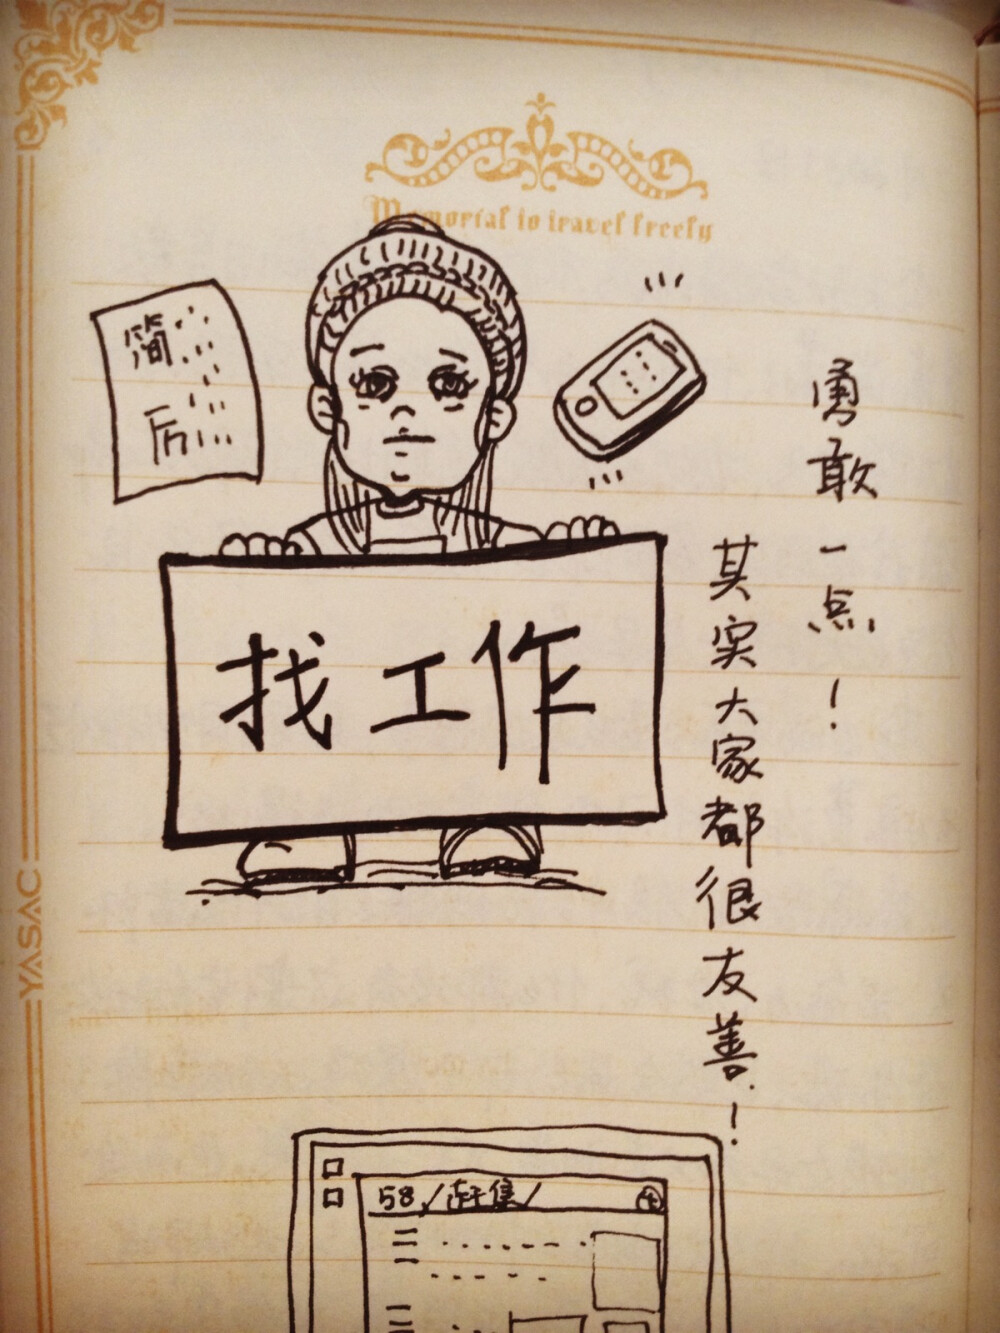 Memorial to travel freely
简
历
找工作
勇敢一点!
其实大家都很友善!
YASAC
58/赶集/